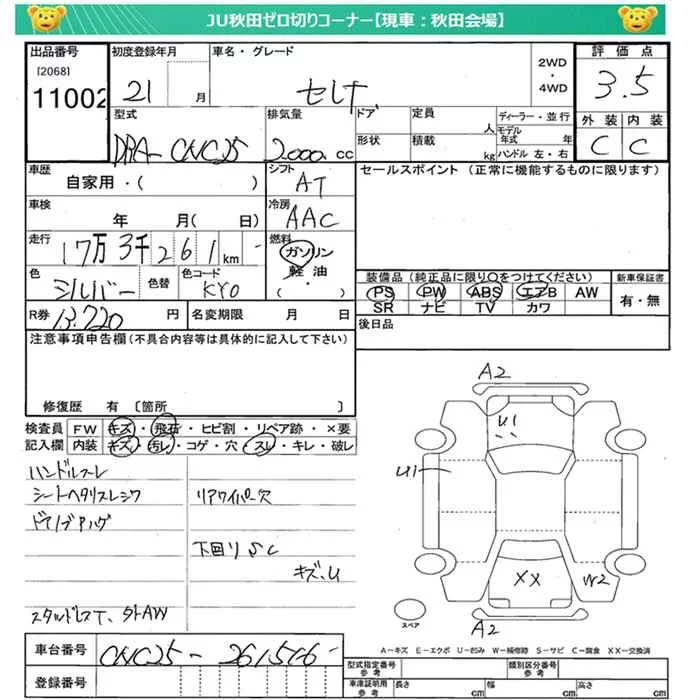 JU秋田ゼロ切りコーナー【現車：秋田会場】
出品番号
[2068]
11002
初度登録年月
21 月
車名・グレード
セレナ
2WD
・
4WD
評価点
3.5
外装 内装
C C
型式
DBA- CNC25
排気量
2000 cc
ドア
形状
定員
人
積載
kg
ディーラー・並行
モデル
年式 年
ハンドル 左・右
車歴
自家用・( )
シフト
AT
セールスポイント (正常に機能するものに限ります)
車検
年 月( 日)
冷房
AAC
走行
17万 3千 261 km
燃料
ガソリン
軽油
・
( )
色
シルバー
色替
色コード
KY0
装備品 (純正品に限り○をつけてください)
PS PW ABS エアB AW
SR ナビ TV カワ
新車保証書
有・無
R券
13.720 円
名変期限 月 日
後日品
注意事項申告欄(不具合内容等は具体的に記入して下さい)
修復歴 有 〔箇所 〕
検査員
記入欄
FW キズ・飛石・ヒビ割・リペア跡・×要
内装 キズ・汚レ・コゲ・穴・スレ・キレ・破レ
ハンドルスレ
シートヘタリスレシワ
リアワイパー穴
下回りSC
キズ、U
スタッドレスT、外AW
A2
U1
U1
XX
W2
A2
スペア
A－キズ E－エクボ U－凹み W－補修跡 S－サビ C－腐食 XX－交換済
車台番号
CNC25 - 261516
登録番号
型式指定番号
参考
類別区分番号
参考
車庫証明用
参考
長さ cm
幅 cm
高さ cm